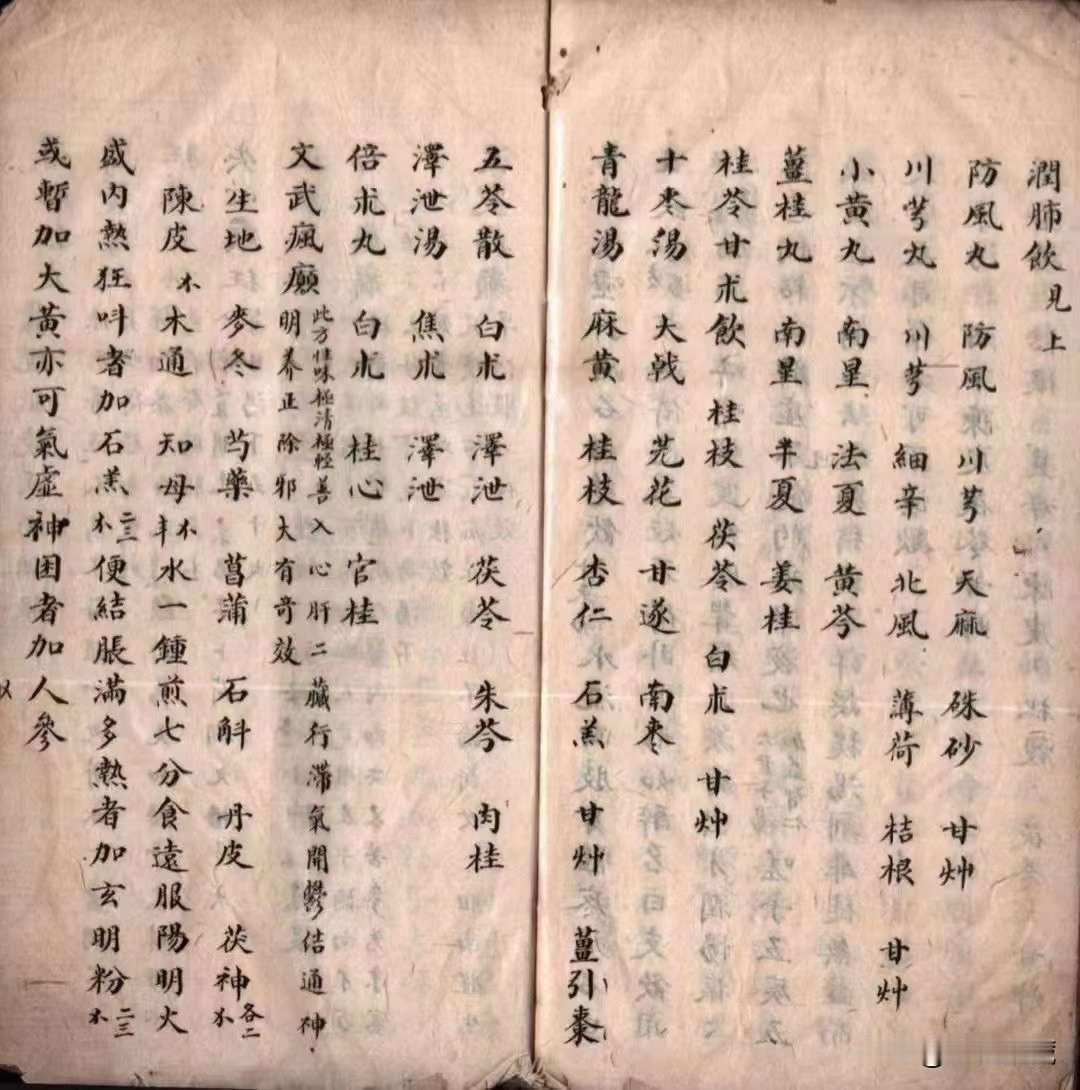 潤肺飲見上
防風丸 防風 川芎 天麻 硃砂 甘艸
川芎丸 川芎 細辛 北風 薄荷 桔根 甘艸
小黃丸 南星 法夏 黃芩
薑桂丸 南星 半夏 姜桂
桂苓甘朮飲 桂枝 茯苓 白朮 甘艸
十枣湯 大戟 芫花 甘遂 南枣
青龍湯 麻黃 桂枝 杏仁 石羔 甘艸 薑引棗
五苓散 白朮 澤泄 茯苓 朱苓 肉桂
澤泄湯 焦朮 澤泄
倍朮丸 白朮 桂心 官桂
文武瘋癲 此方性味極清極輕善入心肝二臟行滯氣開鬱结通神
明养正除邪大有奇效
生地 麥冬 芍藥 菖蒲 石斛 丹皮 茯神各二
陳皮 木通 知母 水一鍾煎七分食遠服陽明火
盛內熱狂呌者加石羔二三便結脹滿多熱者加玄明粉二三
或暫加大黃亦可氣虛神困者加人參